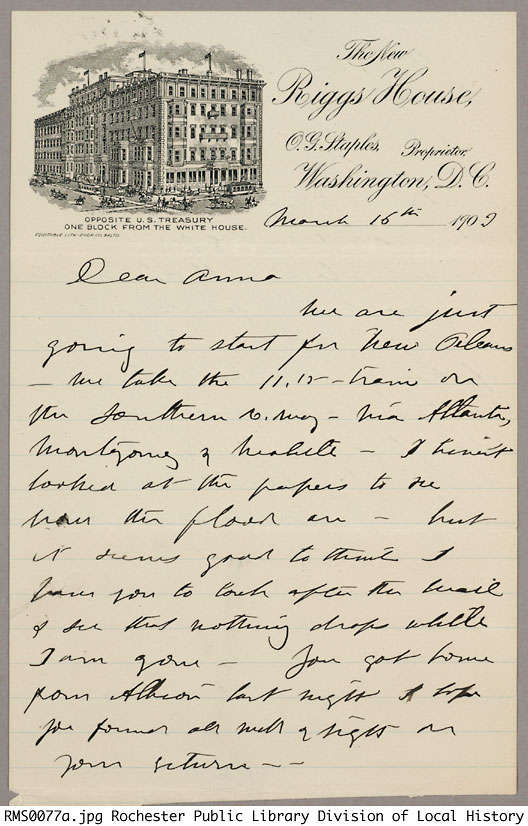 The New
Riggs House,
O.G. Staples, Proprietor,
Washington, D.C.
OPPOSITE U.S. TREASURY
ONE BLOCK FROM THE WHITE HOUSE.
EQUITABLE LITH. & ENGR. CO. BALTO.
March 16th 1903
Dear Anna
We are just
going to start for New Orleans
– we take the 11.15 – train on
the Southern R.way – via Atlanta,
Montgomery & Mobile – I haven't
looked at the papers to see
how the flood are – but
it seems good to think I
have you to look after the mail
& see that nothing drops while
I am gone – You got home
from Albion last night I hope
you found all well & right on
your return – –
RMS0077a.jpg Rochester Public Library Division of Local History